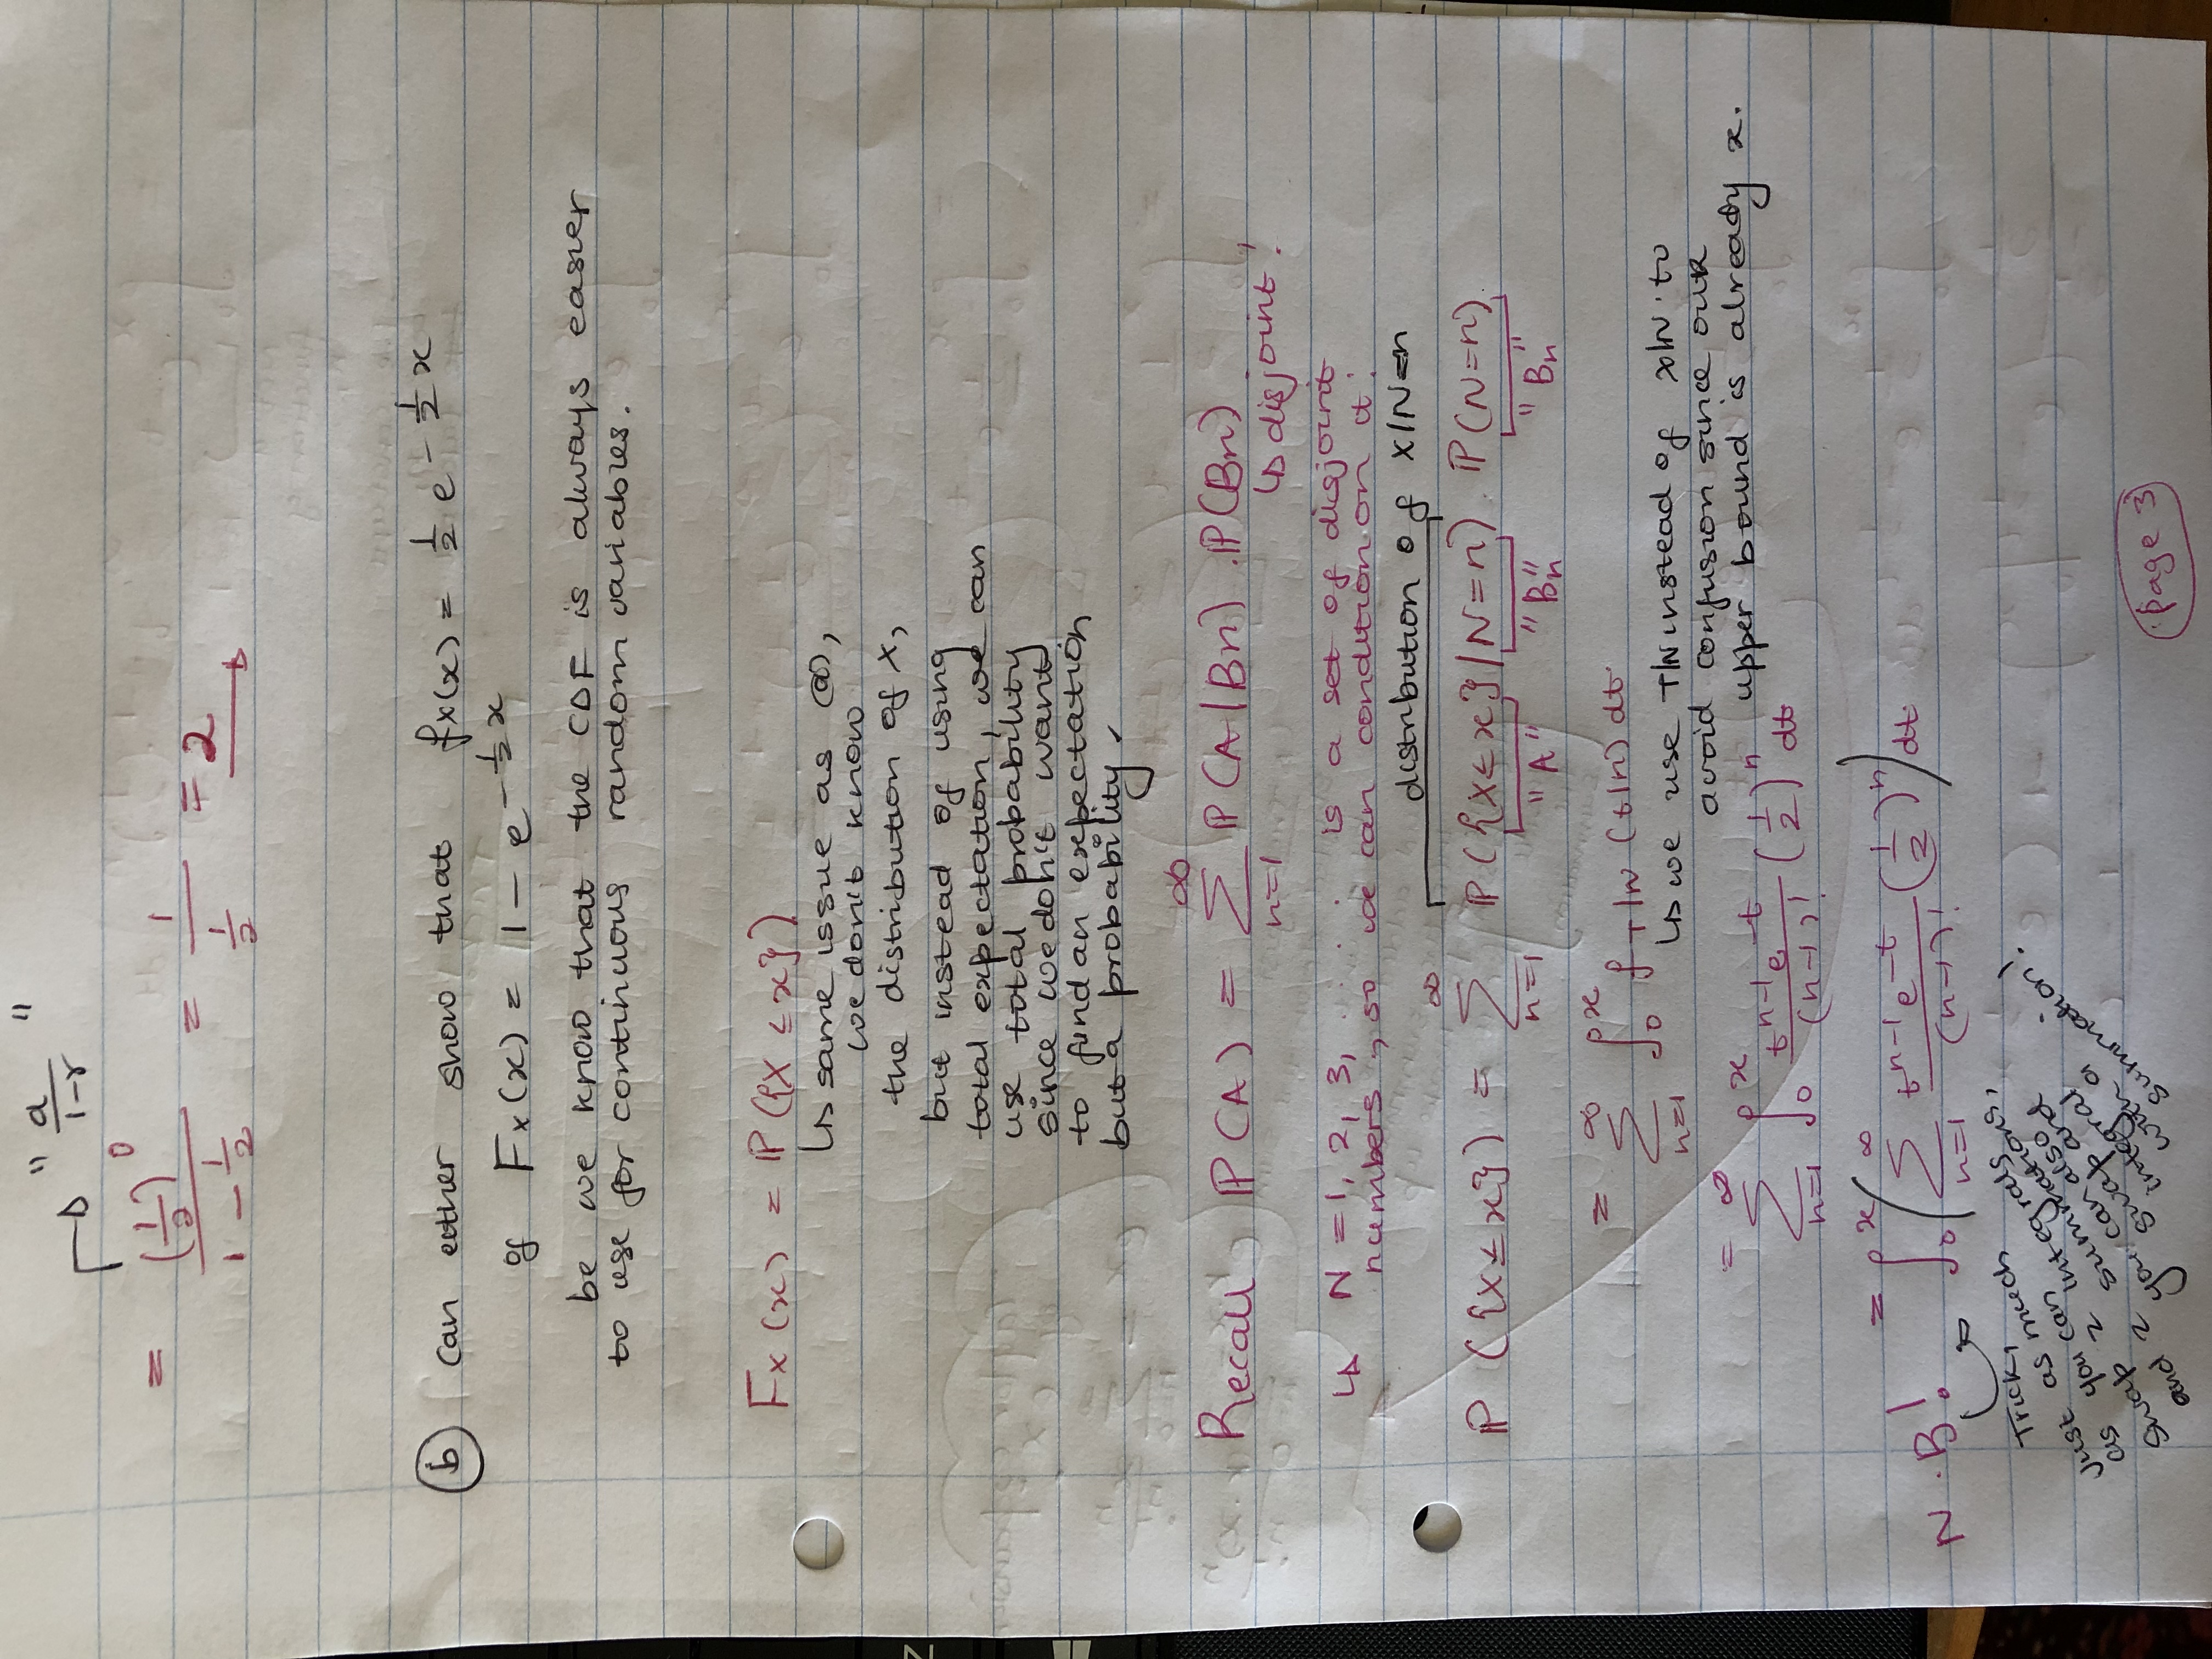 " a/(1-r) "
= (1/2)^0 / (1 - 1/2) = 1 / (1/2) = 2
(b) can either show that fx(x) = 1/2 e^(-1/2 x)
of Fx(x) = 1 - e^(-1/2 x)
be we know that the CDF is always easier
to use for continuous random variables.
Fx(x) = ℙ({X ≤ x})
↳ same issue as (a),
we don't know
the distribution of X,
but instead of using
total expectation, we can
use total probability
since we don't want
to find an expectation
but a probability.
Recall ℙ(A) = ∑_{n=1}^{∞} ℙ(A|Bn) . ℙ(Bn)
↳ disjoint!
↳ N = 1, 2, 3, ..... is a set of disjoint
numbers, so we can condition on it!
distribution of X|N=n
ℙ({X≤x}) = ∑_{n=1}^{∞} ℙ({X≤x}|N=n) . ℙ(N=n)
"A" "Bn" "Bn"
= ∑_{n=1}^{∞} ∫_0^x f_{T|N}(t|n) dt
↳ we use T|N instead of x|N to
avoid confusion since our
upper bound is already x.
= ∑_{n=1}^{∞} ∫_0^x t^{n-1}e^{-t}/(n-1)! (1/2)^n dt
N.B! = ∫_0^x (∑_{n=1}^{∞} t^{n-1}e^{-t}/(n-1)! (1/2)^n) dt
Trick,
just as much
as you can
swap 2 integrals
and 2 summations,
you can also
swap and
integral
with a
summation!
page 3